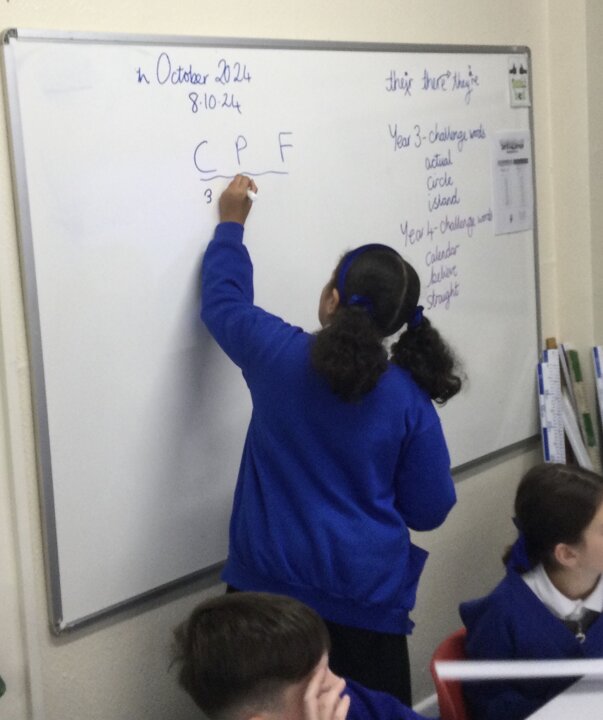 October 2024
8.10.24
C P F
3
their there they're
Year 3- challenge words
actual
circle
island
Year 4- challenge words
calendar
believe
straight